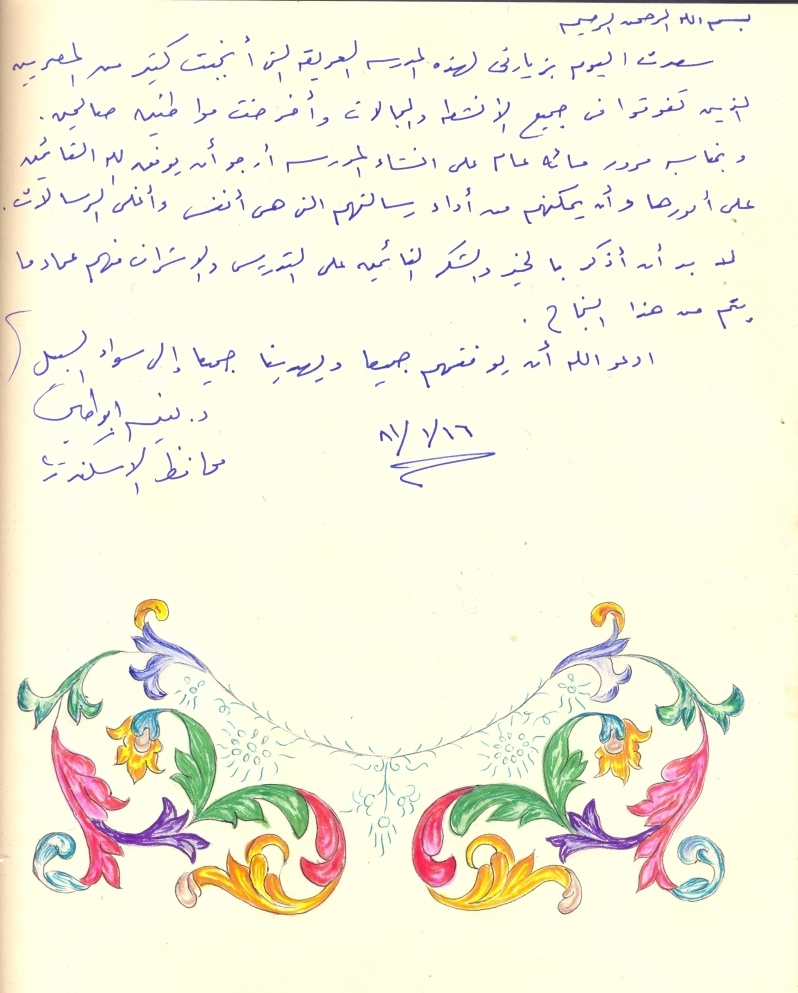 بسم الله الرحمن الرحيم
سعدت اليوم بزيارتى لهذه المدرسه العريقه التى أنجبت كثير من المصريين
الذين تفوقوا فى جميع الأنشطه والمجالات وأفرخت مواطنين صالحين.
وبمناسبه مرور مائه عام على انشاء المدرسه أرجو أن يوفق الله القائمين
على أمورها وأن يمكنهم من أداء رسالتهم التى هى أنفس وأغلى الرسالات.
لا بد أن أذكر بالخير والشكر القائمين على التدريس والإشراف فهم عماد ما
يتم من هذا النجاح.
ادعو الله أن يوفقهم جميعا ويهدينا جميعا إلى سواء السبيل
د. نعيم أبو طالب
محافظ الإسكندرية
٨١/١/١٦